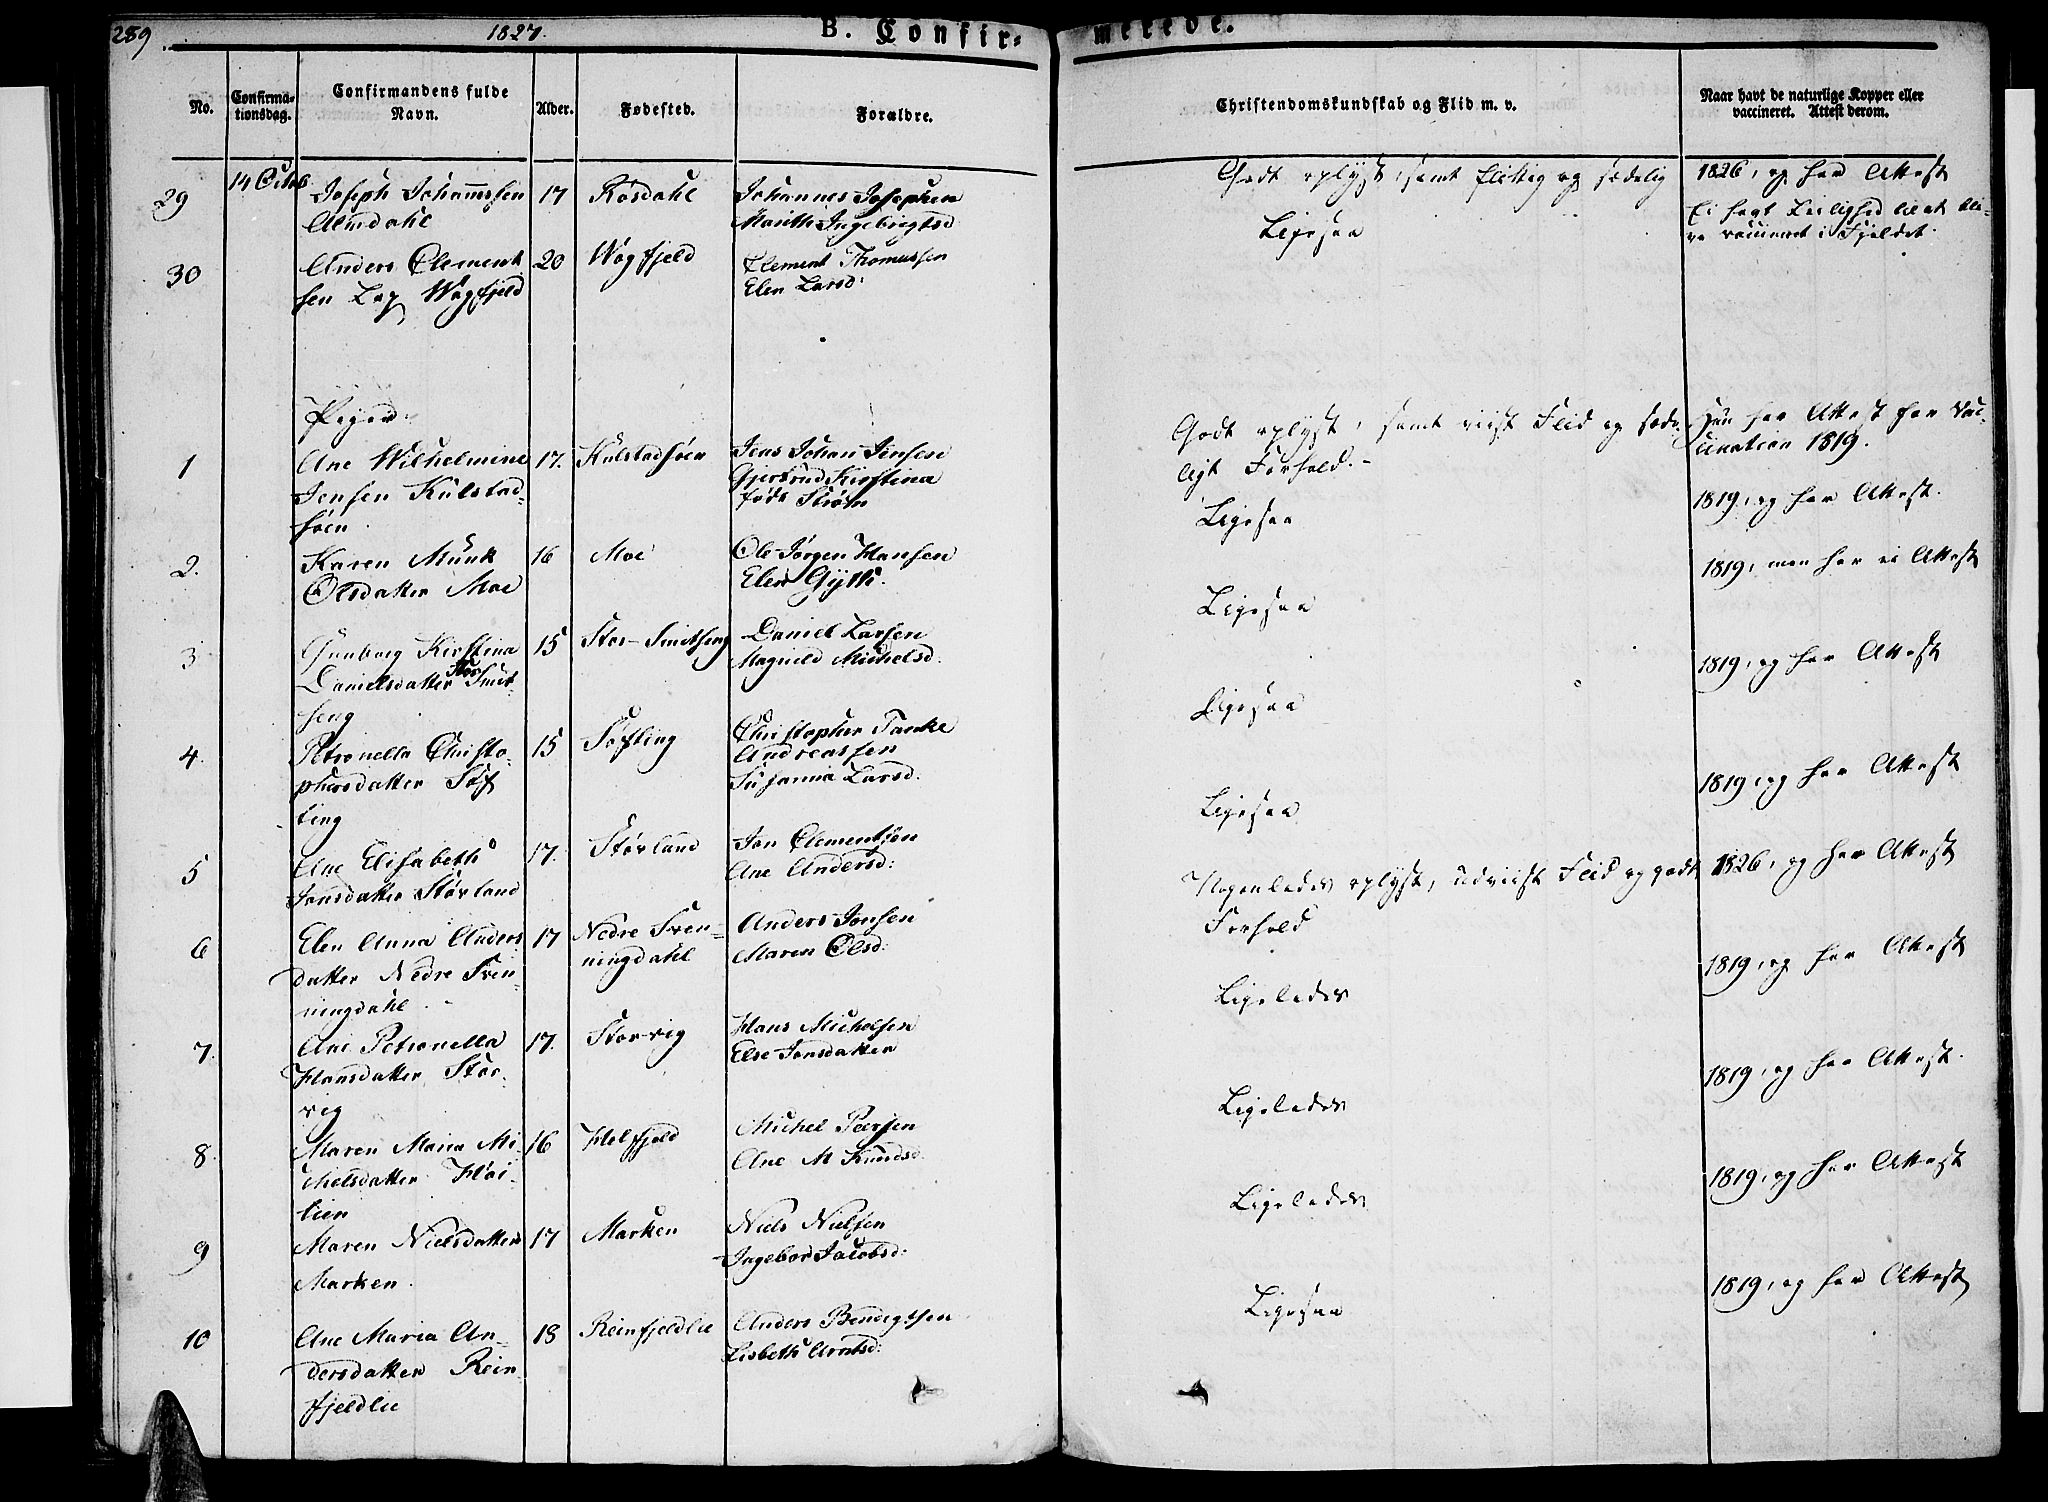 289
1827.
B. Confir-
merede.
No.
Confirma-
tionsdag.
Confirmandens fulde
Navn.
Alder.
Fødested.
Forældre.
Christendomskundskab og Flid m. v.
Naar havt de naturlige Kopper eller
vaccineret. Attest derom.
29
14 Octob
Joseph Johannssen
Almdahl
17
Rosdahl
Johannes Josephsen
Marith Ingebrigtsd
Godt oplyst, samt flittig og sædelig
1826, og har Attest
30
Anders Clement
sen Lap Wegfjeld
20
Wegfjeld
Clement Thomassen
Elen Larsd:
Ligesaa
Ei havt Leilighed til at bli-
ve vaccineret i Fjeldet.
Piger.
1
Ane Wilhelmine
Jensen Kulstad-
søen
17.
Kulstadsøen
Jens Johan Jensen
Gjertrud Kirstina
født Strøm
Godt oplyst, samt viist Flid og sæde-
ligt Forhold.-
Hun har Attest for Vac-
cination 1819.
2.
Karen Munk
Olsdatter Moe
16
Moe
Ole Jørgen Hansen
Elen Gytte.
Ligesaa
1819, og har Attest.
3
Gunborg Kirstina
Danielsdatter Stor Smit-
seng
15
Stor-Smitseng
Daniel Larsen
Magnild Michelsd:
Ligesaa
1819, men har ei Attest
4.
Petronella Christo-
phersdatter Søf
ting
15
Søfting
Christopher Tanke
Andreassen
Susanna Larsd:
Ligesaa
1819, og har Attest
5
Ane Elisabeth
Jonsdatter Storland
17.
Storland
Jon Clementsen
Ane Andersd:
Ligesaa
1819, og har Attest
6
Elen Anna Anders
datter Nedre Sven-
ningdahl
17
Nedre Sven-
ningdahl
Anders Jonsen
Maren Olsd:
Nogenledes oplyst, udviist Flid og godt
Forhold
1826, og har Attest
7.
Ane Petronella
Hansdatter Stor-
vig
17.
Storvig
Hans Michelsen
Else Jonsdatter
Ligeledes
1819, og har Attest
8.
Maren Maria Mi
chelsdatter Høi-
lien
16
Helfjeld
Michel Peersen
Ane M Knudsd.
Ligeledes
1819, og har Attest.
9
Maren Nielsdatter
Marken.
17
Marken
Niels Nielsen
Ingebor Jacobsd:
Ligeledes
1819, og har Attest
10
Ane Maria An-
dersdatter Rein
fjeldlie
18
Reinfjeldlie
Anders Bendigtsen
Lisbeth Arntsd:
Ligesaa
1819, og har Attest